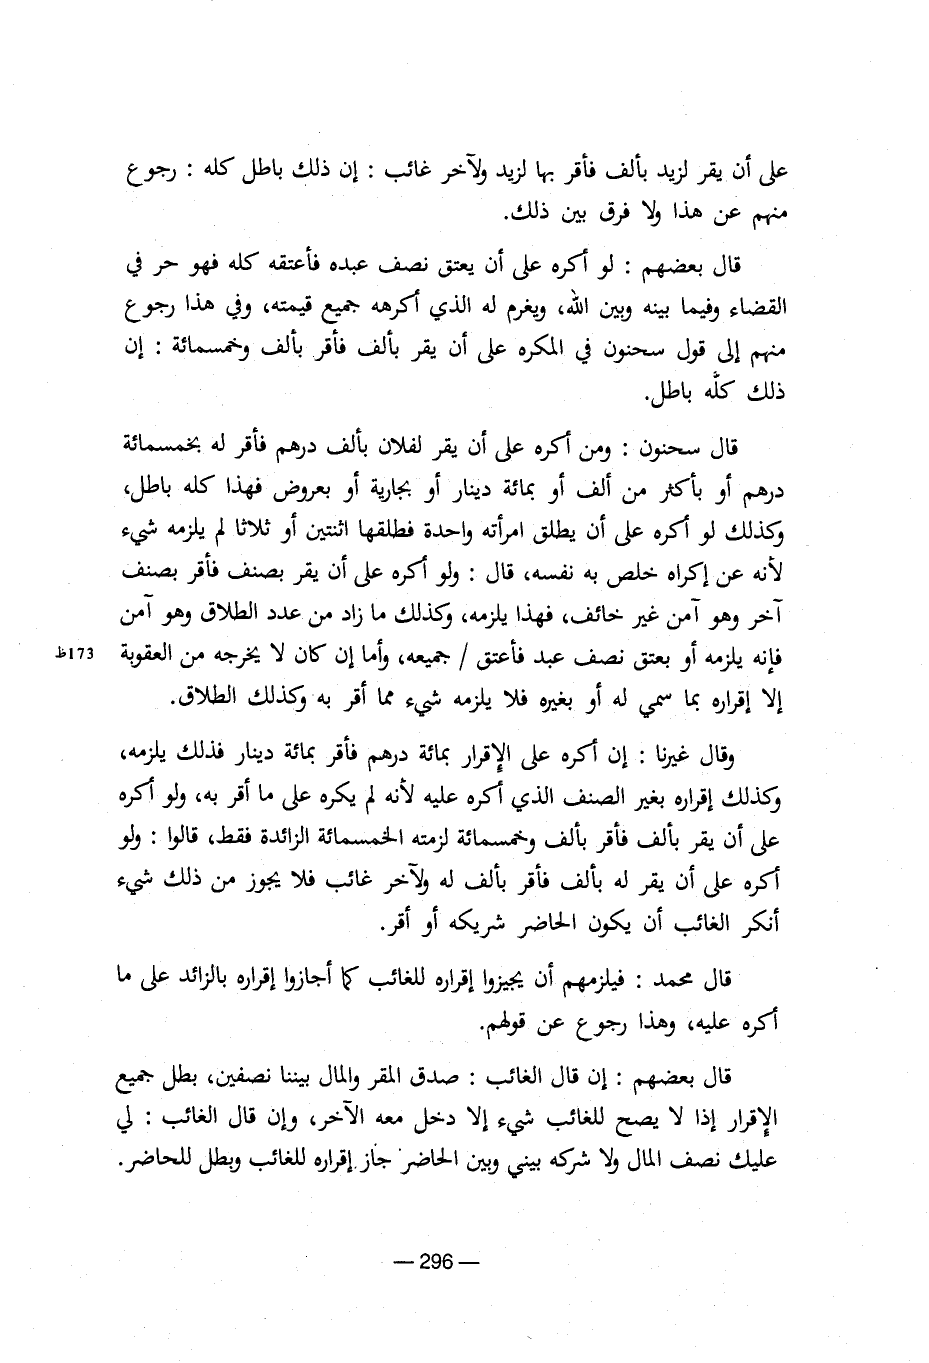 على أن يقر لزيد بألف فأقر بها لزيد ولآخر غائب : إن ذلك باطل كله : رجوع
منهم عن هذا ولا فرق بين ذلك.
قال بعضهم : لو أكره على أن يعتق نصف عبده فأعتقه كله فهو حر في
القضاء وفيما بينه وبين الله، ويغرم له الذي أكرهه جميع قيمته، وفي هذا رجوع
منهم إلى قول سحنون في المكره على أن يقر بألف فأقر بألف وخمسمائة : إن
ذلك كلَّه باطل.
قال سحنون : ومن أكره على أن يقر لفلان بألف درهم فأقر له بخمسمائة
درهم أو بأكثر من ألف أو بمائة دينار أو بجارية أو بعروض فهذا كله باطل،
وكذلك لو أكره على أن يطلق امرأته واحدة فطلقها اثنتين أو ثلاثا لم يلزمه شيء
لأنه عن إكراه خلص به نفسه، قال : ولو أكره على أن يقر بصنف فأقر بصنف
آخر وهو آمن غير خائف، فهذا يلزمه، وكذلك ما زاد من عدد الطلاق وهو آمن
فإنه يلزمه أو بعتق نصف عبد فأعتق / جميعه، وأما إن كان لا يخرجه من العقوبة 173ظ
إلا إقراره بما سمي له أو بغيره فلا يلزمه شيء مما أقر به وكذلك الطلاق.
وقال غيرنا : إن أكره على الإقرار بمائة درهم فأقر بمائة دينار فذلك يلزمه،
وكذلك إقراره بغير الصنف الذي أكره عليه لأنه لم يكره على ما أقر به، ولو أكره
على أن يقر بألف فأقر بألف وخمسمائة لزمته الخمسمائة الزائدة فقط، قالوا : ولو
أكره على أن يقر له بألف فأقر بألف له ولآخر غائب فلا يجوز من ذلك شيء
أنكر الغائب أن يكون الحاضر شريكه أو أقر.
قال محمد : فيلزمهم أن يجيزوا إقراره للغائب كما أجازوا إقراره بالزائد على ما
أكره عليه، وهذا رجوع عن قولهم.
قال بعضهم : إن قال الغائب : صدق المقر والمال بيننا نصفين، بطل جميع
الإقرار إذا لا يصح للغائب شيء إلا دخل معه الآخر، وإن قال الغائب : لي
عليك نصف المال ولا شركه بيني وبين الحاضر جاز إقراره للغائب وبطل للحاضر.
— 296 —